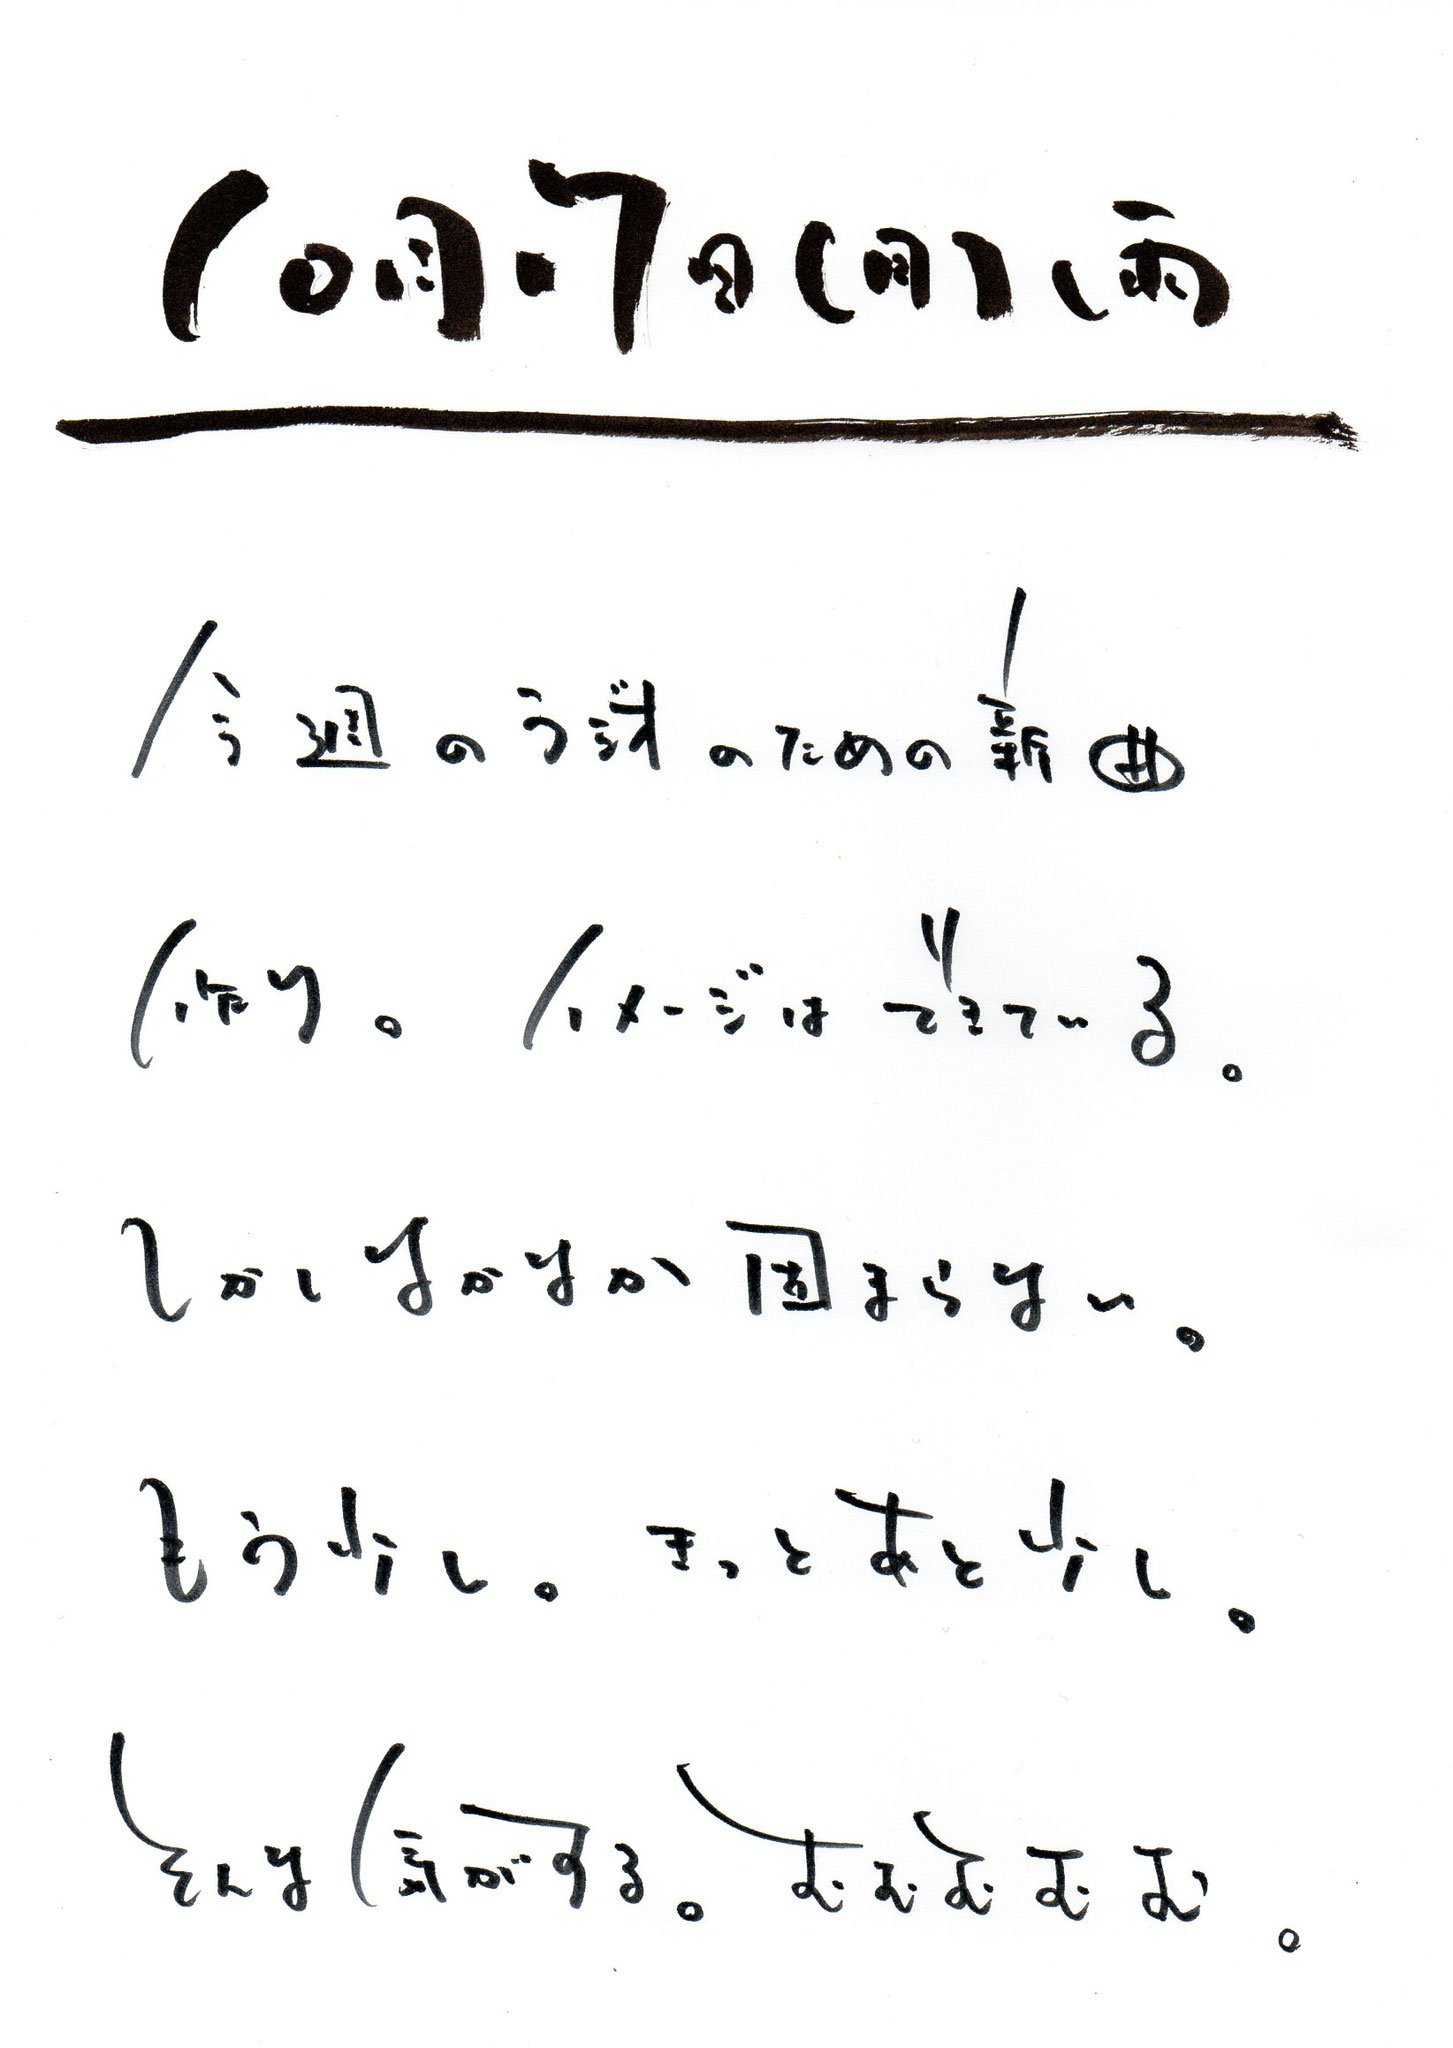 10月7日(月)雨
今週のうぢのための新曲
作り。イメージはできている。
しかしなかなか固まらない。
もう少し。きっとあと少し。
そんな気がする。むむむむむ。